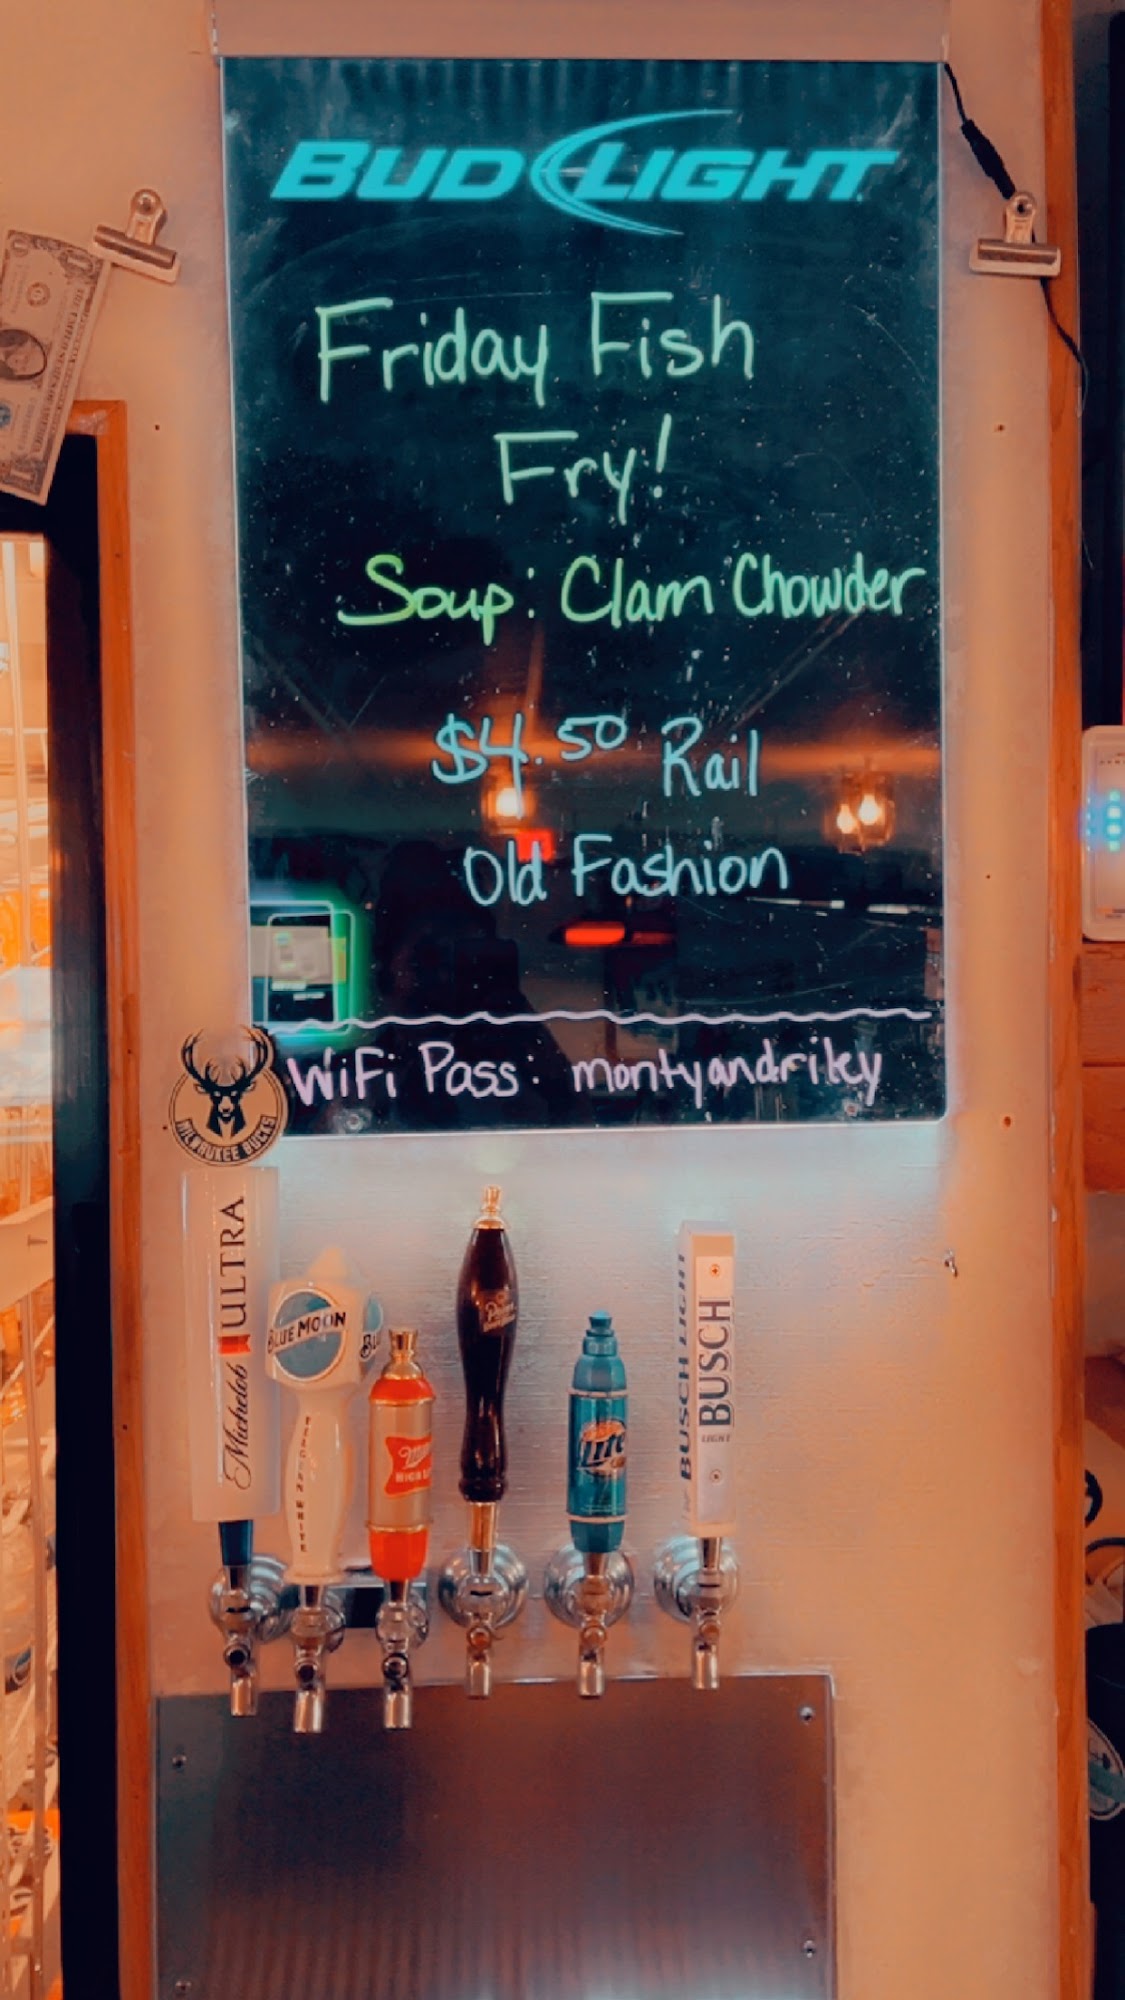 BUD LIGHT
Friday Fish
Fry!
Soup: Clam Chowder
$4.50 Rail
Old Fashion
WiFi Pass: montyandriley
MILWAUKEE BUCKS
Michelob ULTRA
BLUE MOON
BELGIAN WHITE
HIGH
Lite
BUSCH LIGHT
BUSCH
LIGHT